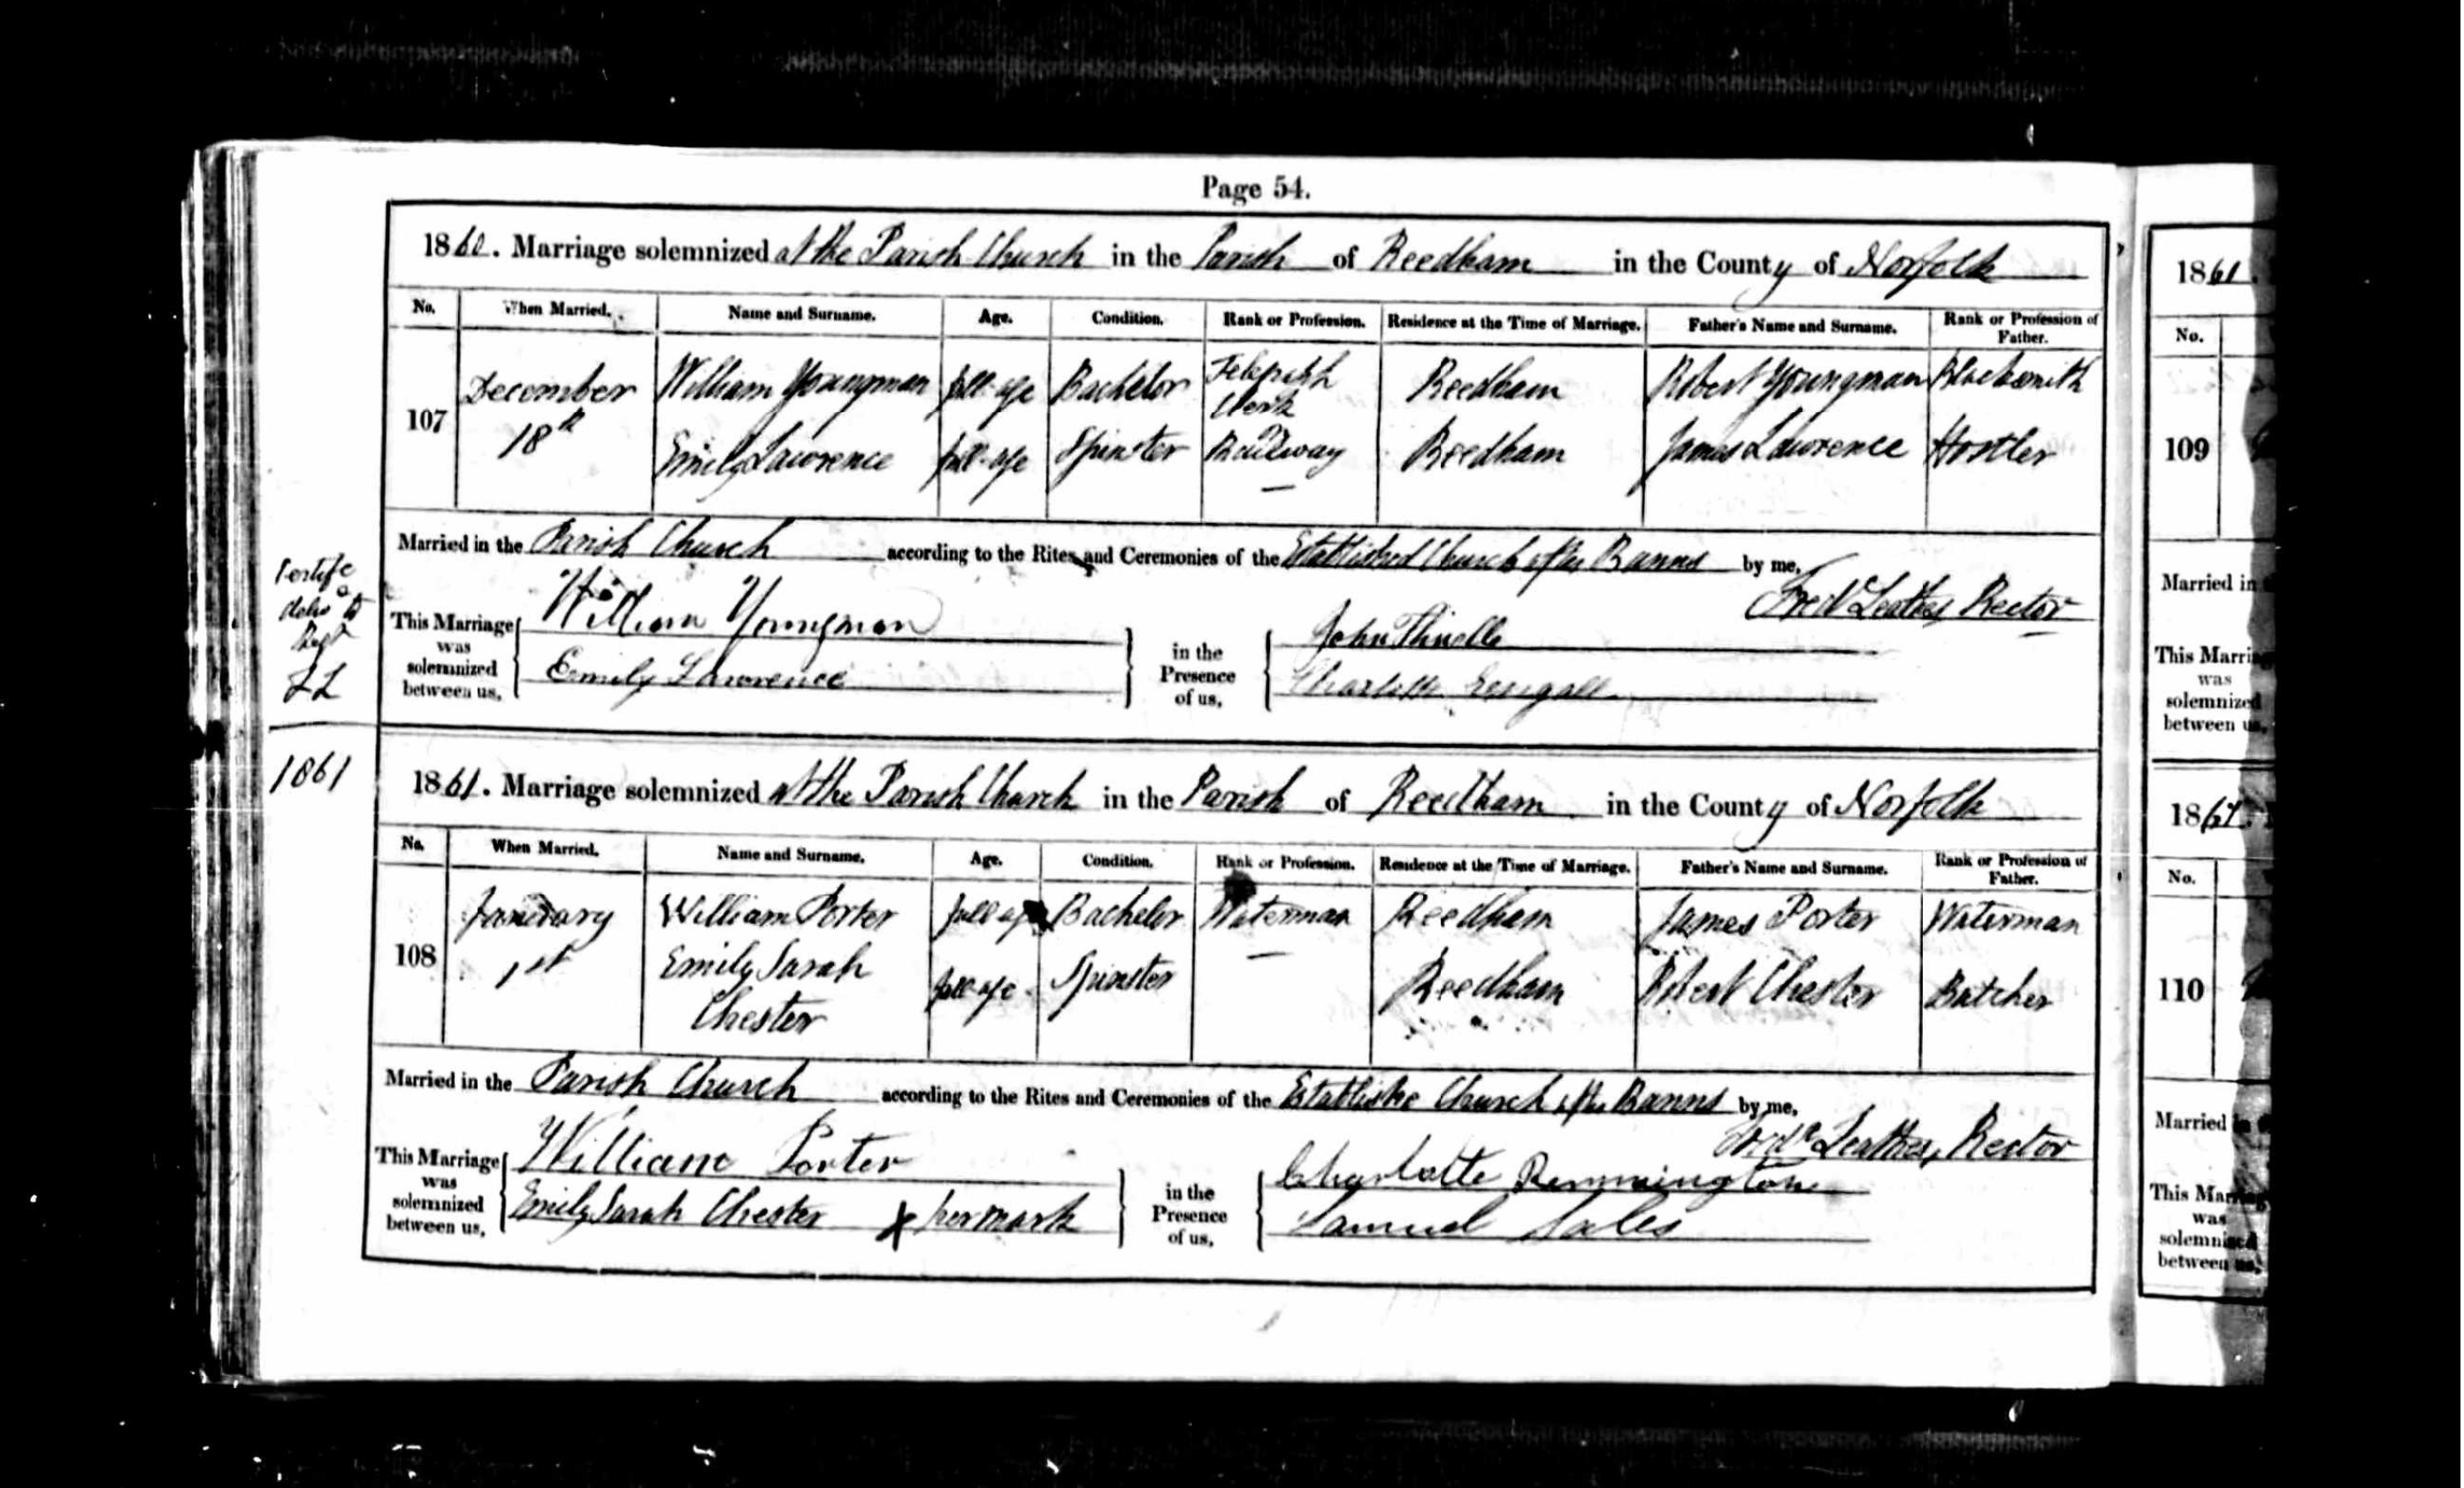 Page 54.
1860. Marriage solemnized at the Parish Church in the Parish of Reedham in the County of Norfolk
No. When Married. Name and Surname. Age. Condition. Rank or Profession. Residence at the Time of Marriage. Father's Name and Surname. Rank or Profession of Father.
107 December 18th William Youngman full age Bachelor Telegraph Clerk Railway Reedham Robert Youngman Blacksmith
Emily Lawrence full age Spinster — Reedham James Lawrence Hostler
Married in the Parish Church according to the Rites and Ceremonies of the Established Church after Banns by me,
Fredc Leathes, Rector
This Marriage was solemnized between us, William Youngman
Emily Lawrence
in the Presence of us, John
Charlotte
1861
1861. Marriage solemnized at the Parish Church in the Parish of Reedham in the County of Norfolk
No. When Married. Name and Surname. Age. Condition. Rank or Profession. Residence at the Time of Marriage. Father's Name and Surname. Rank or Profession of Father.
108 January 1st William Porter full age Bachelor Waterman Reedham James Porter Waterman
Emily Sarah Chester full age Spinster — Reedham Robert Chester Butcher
Married in the Parish Church according to the Rites and Ceremonies of the Establishe Church after Banns by me,
Fredc Leathes, Rector
This Marriage was solemnized between us, William Porter
Emily Sarah Chester X her mark
in the Presence of us, Charlotte Remmington
Samuel Sales
1861.
No.
109
Married in
This
was
solemnized
between us,
186
No.
110
Married
This
was
solemnized
between us,